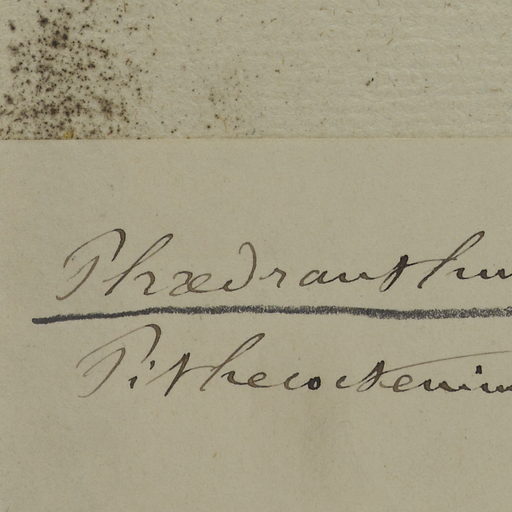 Phædranthu
Pithecoctenium